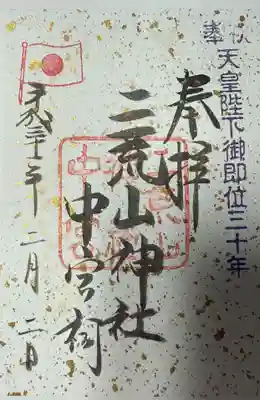 奉祝
天皇陛下御即位三十年
奉拝
二荒山神社
中宮祠
平成三十一年 二月 二日